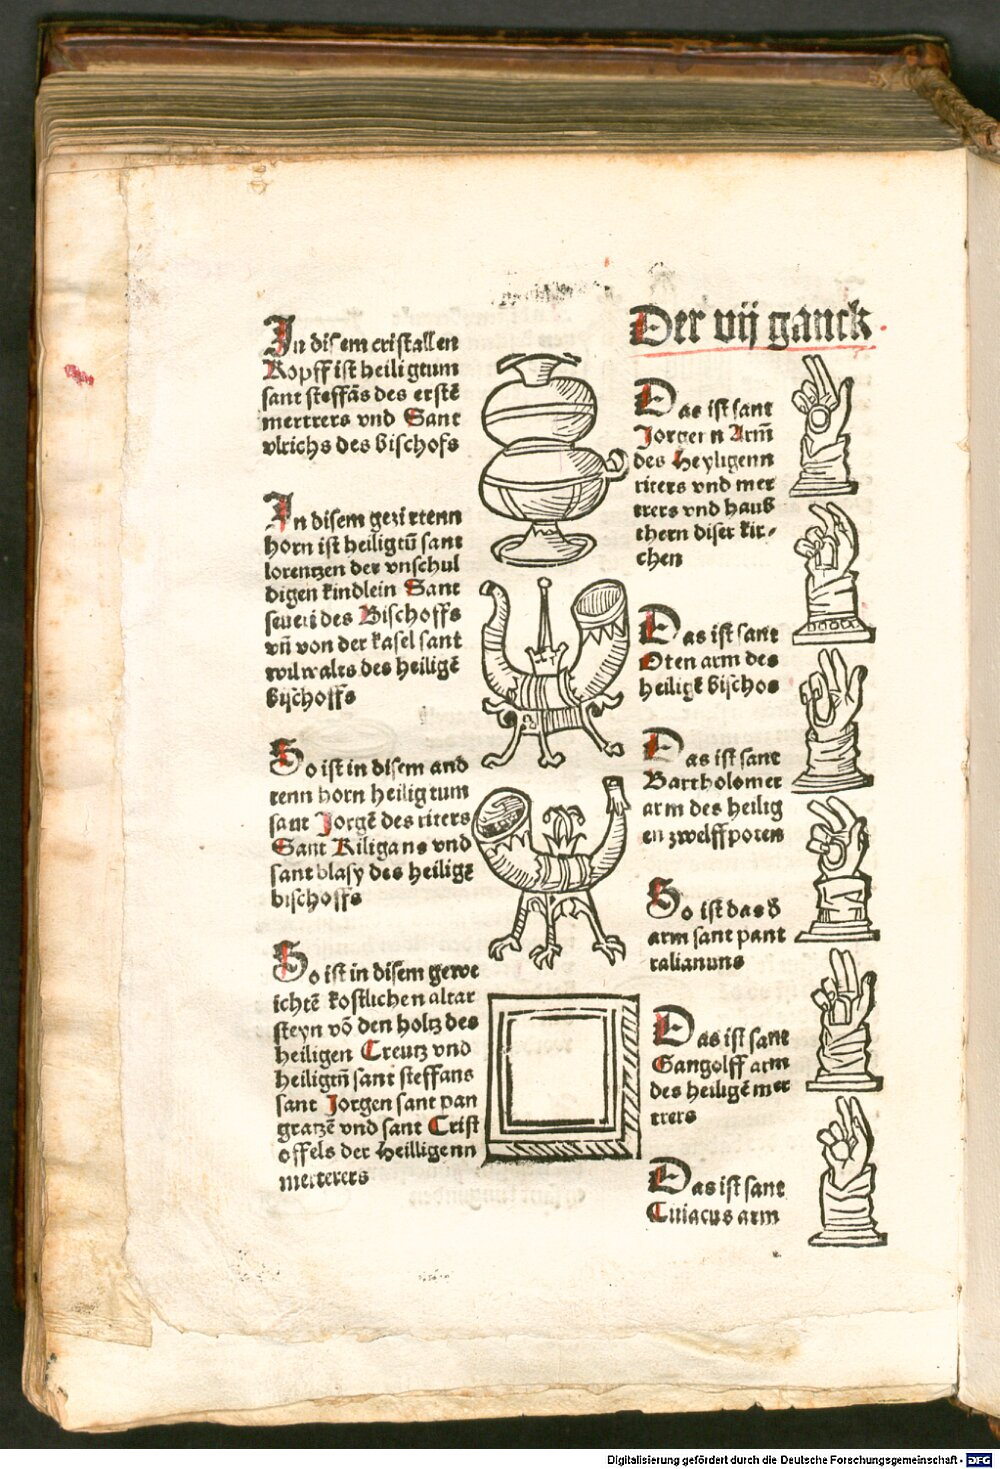 In disem cristallen
Kopff ist heiligtum
sant steffãs des erstẽ
mertrers vnd Sant
vlrichs des bischofs
In disem gezirtenn
horn ist heiligtũ sant
lorentzen der vnschul
digen kindlein Sant
seueri des Bischoffs
vñ von der kasel sant
wilwalts des heiligẽ
bischoffs
So ist in disem and
renn horn heilig tum
sant Jorgẽ des riters
Sant Kiligans vnd
sant blasy des heiligẽ
bischoffs
So ist in disem gewe
ichtẽ kostlichen altar
steyn võ den holtz des
heiligen Creutz vnd
heiligtũ sant steffans
sant Jorgen sant pan
gratzẽ vnd sant Crist
offels der heilligenn
merterers
Der vij ganck
Das ist sant
Jorgen Arm̃
des Heyligenn
riters vnd mer
trers vnd haub
thern diser kir-
chen
Das ist sant
Oten arm des
heiligẽ bischos
Das ist sant
Bartholomer
arm des heilig
en zwelffpoten
So ist das ď
arm sant pant
ralianuns
Das ist sant
Gangolff arm
des heiligẽ mer
trers
Das ist sant
Ciriacus arm
Digitalisierung gefördert durch die Deutsche Forschungsgemeinschaft - DFG